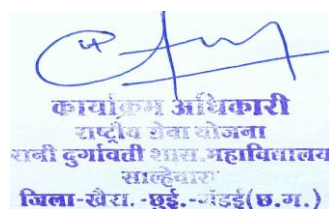 कार्याक्रम अधिकारी
राष्ट्रीय सेवा योजना
रानी दुर्गावती शास. महाविद्यालय
साल्हेवारा
जिला-खैरा. -छुई. -गंडई(छ.ग.)